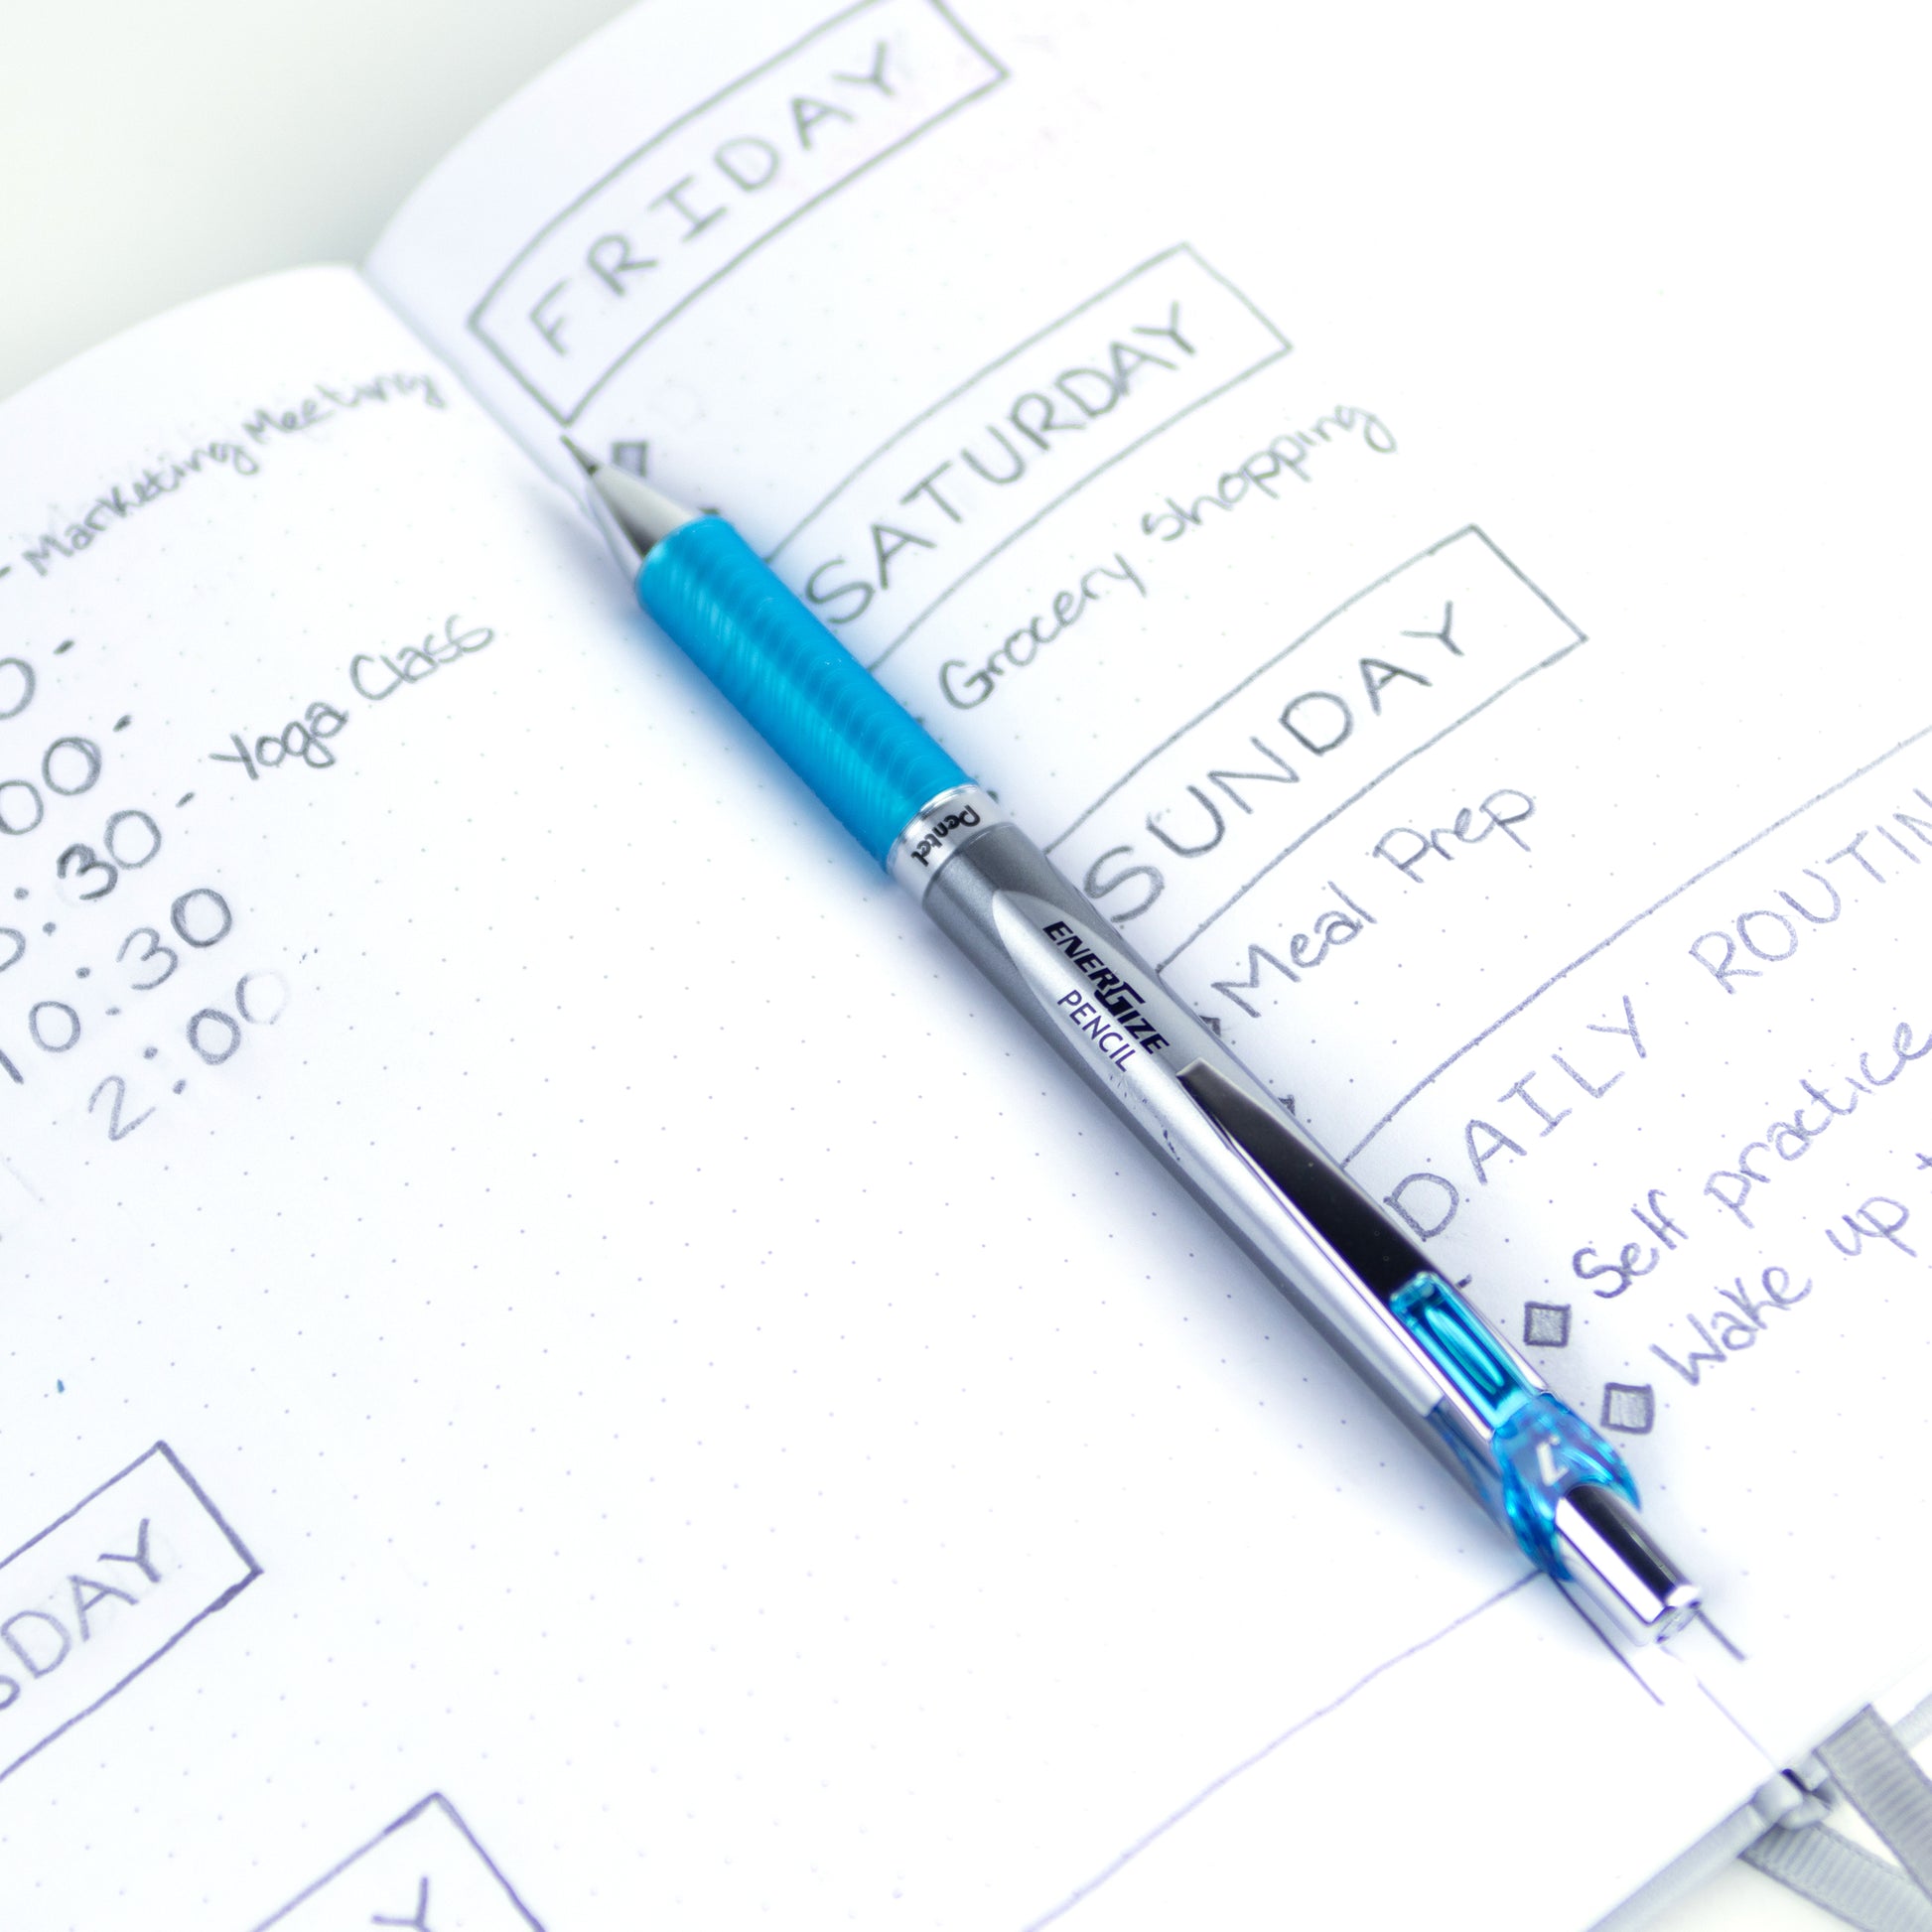 - Marketing Meeting
0-
00-
:30 - Yoga Class
10:30
2:00
SDAY
Y
FRIDAY
SATURDAY
Grocery shopping
SUNDAY
Meal Prep
DAILY ROUTIN
Self practice
Wake up
Pentel
ENERGIZE
PENCIL